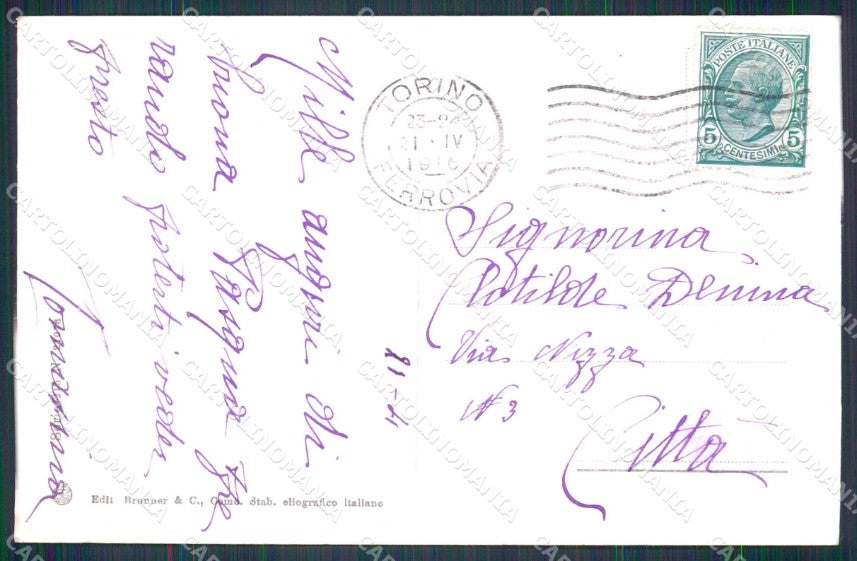 Mille auguri di
buona Pasqua spe
rando poterti veder
presto
Tommasina
21-4
TORINO
23-24
21 · IV
1916
FERROVIA
POSTE ITALIANE
5 5
CENTESIMI
Signorina
Clotilde Denina
Via Nizza
N 3
Città
Edit Brunner & C., Como. Stab. eliografico Italiano
CARTOLINOMANIA